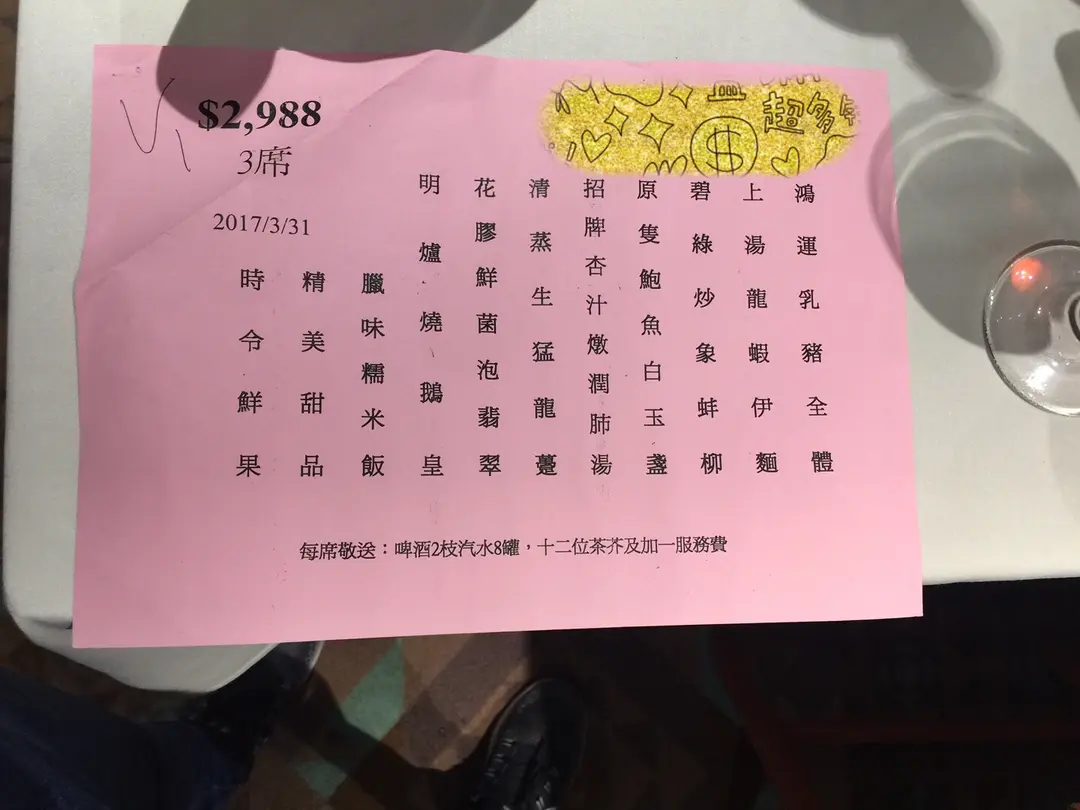 $2,988
3席
2017/3/31
超多
鴻運乳豬全體
上湯龍蝦伊麵
碧綠炒象蚌柳
原隻鮑魚白玉盞
招牌杏汁燉潤肺湯
清蒸生猛龍躉
花膠鮮菌泡翡翠
明爐燒鵝皇
臘味糯米飯
精美甜品
時令鮮果
每席敬送：啤酒2枝汽水8罐，十二位茶芥及加一服務費